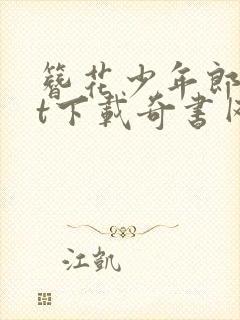 簪花少年郎
t下载奇书网
江凯